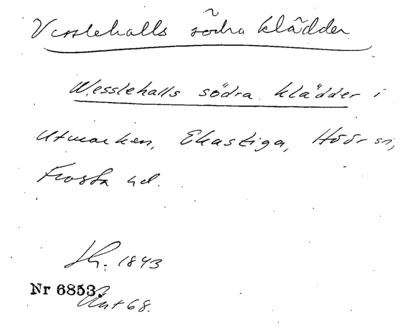 Vesslehalls södra klädder
Wesslehalls södra klädder i
Utmarken, Ekastiga, Höör sn,
Frosta hd.
Sk. 1843
Nr 6853.
Ant 68.